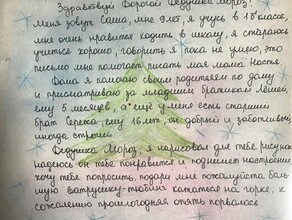 Здравствуй Дорогой Дедушка Мороз!
Меня зовут Саша, мне 9 лет, я учусь в 1 классе,
мне очень нравится ходить в школу, я стараюсь
учиться хорошо, говорить я пока не умею, это
письмо мне помогает писать моя мама Настя.
Дома я помогаю своим родителям по дому
и присматриваю за младшим братиком Лёшей,
ему 5 месяцев, а ещё у меня есть старший
брат Серёжа, ему 16 лет, он добрый и заботливый,
иногда строгий.
Дедушка Мороз, я нарисовал для тебя рисунок,
надеюсь он тебе понравится и поднимет настроение,
хочу тебя попросить, подари мне пожалуйста боль
шую ватрушку-тюбинг кататься на горке, к
сожалению прошлогодняя опять порвалась.